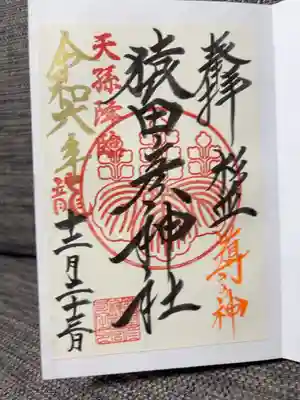 奉拝 杉並 導の神
猿田彦神社
天孫降臨
令和六年 龍
十二月二十二日